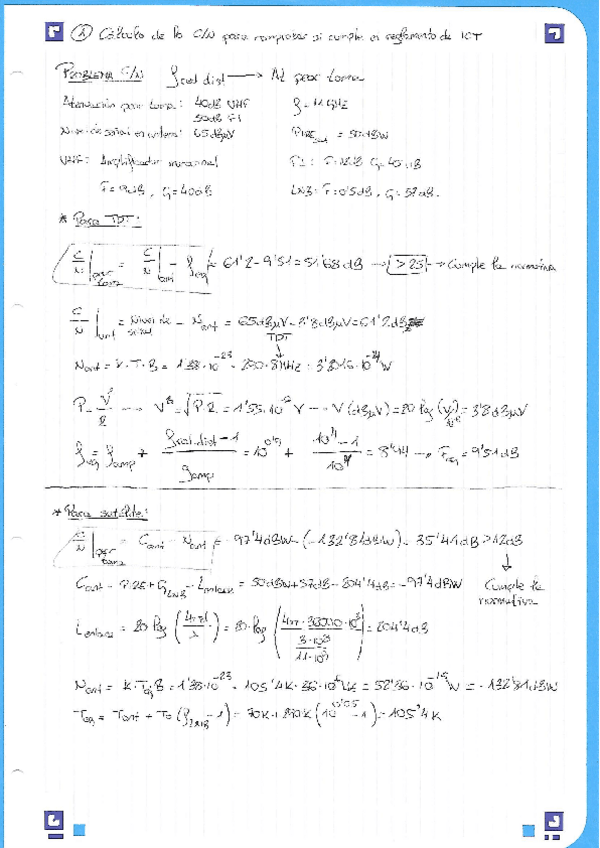 Ⓐ Cálculo de la C/N para comprobar si cumple el reglamento de ICT
PROBLEMA C/N ƒred dist → AL peor toma
Atenuación peor toma: 40dB UHF ƒ = 11 GHz
50dB FI
Nivel de señal en antena: 65dBμV PIRE sat = 50dBW
UHF: Amplificador monocanal G=40dB
F=9dB, G=40dB LNB: F=0'5dB, G=57dB.
* Para TDT:
C/N | peor toma = C/N | ant - Feq = 61'2-9'51=51'68dB → >25 → Cumple la normativa
C/N | ant = Nivel de señal - Nant = 65dBμV-3'8dBμV=61'2dB
TDT
Nant = K·T·B = 1'38·10^-23 · 290·8MHz = 3'2016·10^-14 W
P=V²/R → V=√P·R = 1'55·10^-6 V → V(dBμV)=20 log (V/10^-6)=3'8dBμV
ƒeq = ƒamp + (ƒred.dist-1)/gamp = 10^0'9 + (10^4-1)/10^4 = 8'94 → Feq=9'51dB
* Para satélite:
C/N | peor toma = Cant - Nant = -97'4dBW-(-132'81dBW)= 35'41dB >12dB
↓
Cant = PIRE+GLNB-Lenlace = 50dBW+57dB-204'4dB=-97'4dBW Cumple la
normativa
Lenlace = 20 log (4πd/λ) = 20·log = 204'4dB
Nant = K·Teq·B = 1'38·10^-23 · 105'4K·36·10^6 Hz = 52'36·10^-15 W = -132'81dBW
Teq = Tant + To(ƒLNB-1) = 70K+290K(10^0'05-1)=105'4K